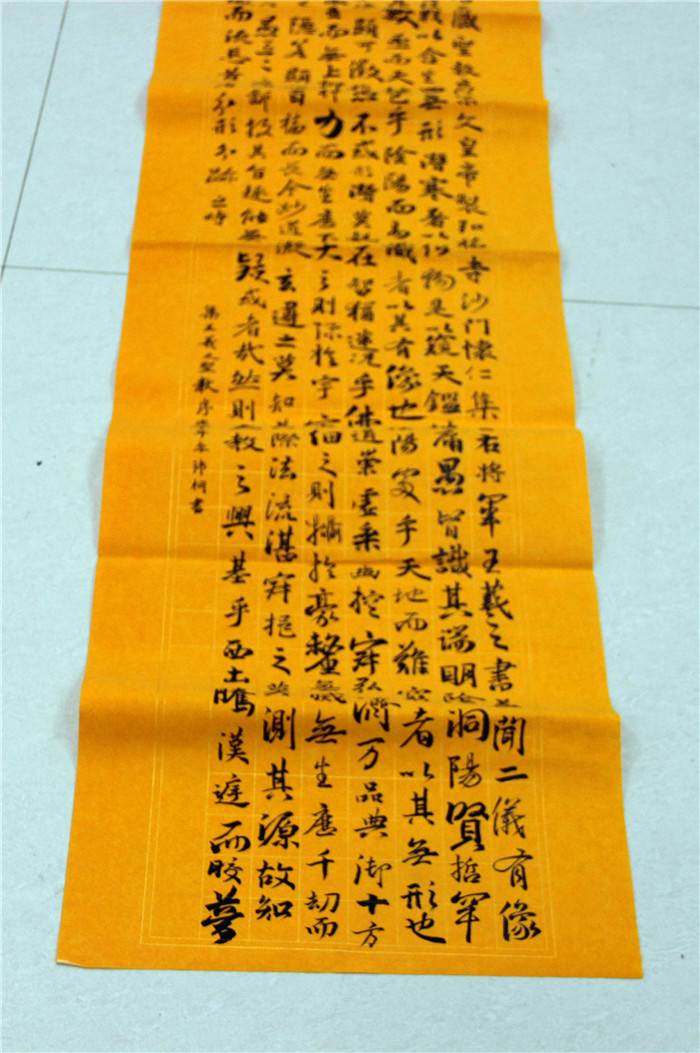 藏聖教宗文皇帝製弘福寺沙門懷仁集右將軍王羲之書蓋聞二儀有像
以含生無形潛寒暑以化物是以窺天鑑庸愚皆識其端明陰洞陽賢哲罕
數然而天苞乎陰陽而易識者以其有像也陽處乎天地而難窮者以其無形也
顯可徵愚不惑形潛莫覩在智猶迷況乎佛道崇虛乘幽控寂弘濟万品典御十方
靈而無上抑力而無下大之則彌於宇宙細之則攝於豪釐無滅無生歷千劫而
隱若顯百福而長今妙道凝玄遵之莫知際法流湛寂挹之莫測其源故知
愚區之庸鄙投其旨趣能無疑惑者哉然則教之興基乎西土騰漢庭而皎夢
而流慈昔分形分跡之時
集王羲之聖教序書